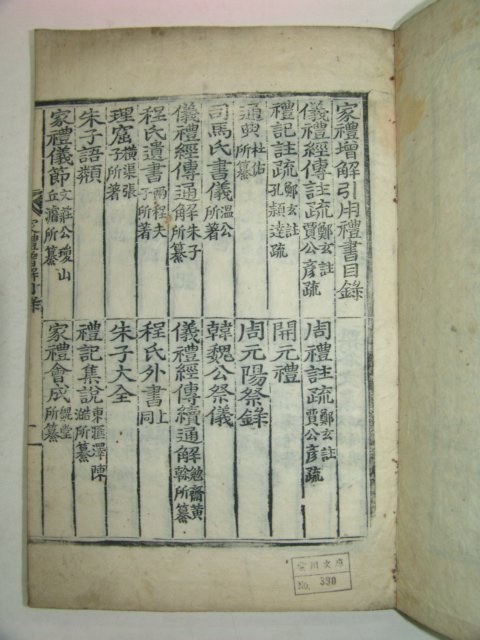 家禮增解引用禮書目錄
儀禮經傳註疏 鄭玄註 賈公彦疏 周禮註疏 鄭玄註 賈公彦疏
禮記註疏 鄭玄註 孔頴達疏 開元禮
通典 杜佑所纂 周元陽祭錄
司馬氏書儀 溫公所著 韓魏公祭儀
儀禮經傳通解 朱子所纂 儀禮經傳續通解 勉齋黃榦所纂
程氏遺書 兩程夫子所著 程氏外書 上同
理窟 橫渠張子所著 朱子大全
朱子語類 禮記集說 東匯澤陳澔所纂
家禮儀節 文莊公瓊山丘濬所纂 家禮會成 魏堂所纂
家禮增解目錄 一
文庫
No.